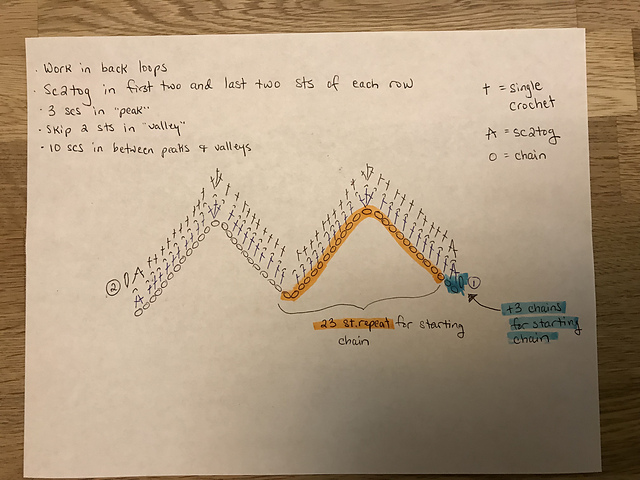 · Work in back loops
· Sc2tog in first two and last two sts of each row
· 3 scs in "peak"
· Skip 2 sts in "valley"
· 10 scs in between peaks & valleys
† = single
crochet
A = sc2tog
o = chain
②
①
23 st. repeat for starting
chain
+3 chains
for starting
chain